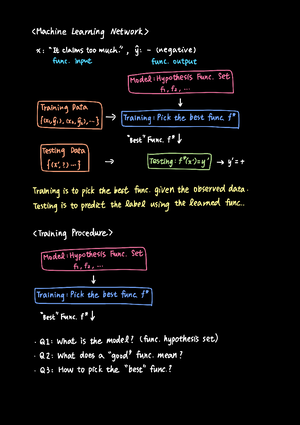 <Machine Learning Network>
x: "It claims too much." , ŷ: - (negative)
func. input
func. output
Model: Hypothesis Func. Set
f₁, f₂, ...
Training Data
{(x₁, ŷ₁), (x₂, ŷ₂), ...}
Training: Pick the best func. f*
"Best" Func. f*
Testing Data
{(x', ?) ...}
Testing: f*(x') = y'
→ y' = +
Training is to pick the best func. given the observed data.
Testing is to predict the label using the learned func..
<Training Procedure>
Model: Hypothesis Func. Set
f₁, f₂, ...
Training: Pick the best func. f*
"Best" Func. f*
· Q1: What is the model? (func. hypothesis set)
· Q2: What does a "good" func. mean?
· Q3: How to pick the "best" func.?